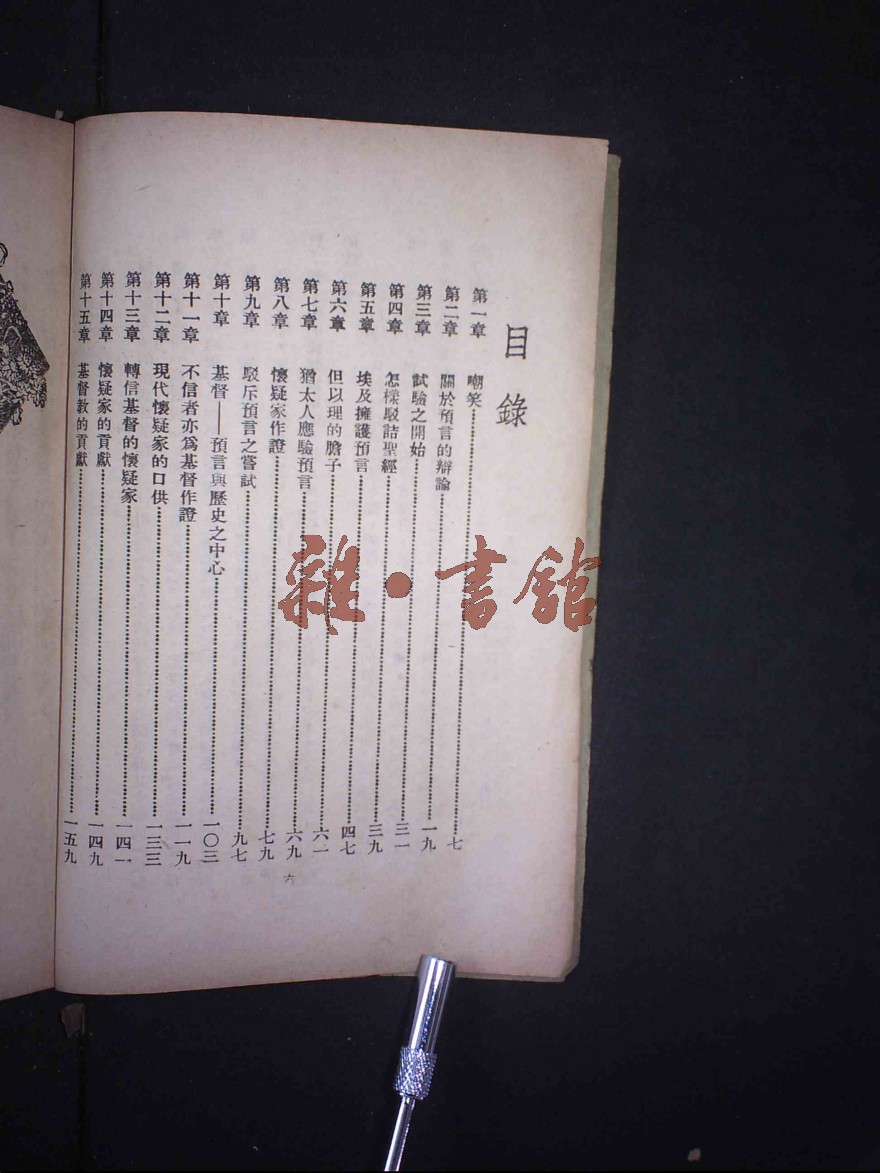 目錄
第一章 嘲笑……七
第二章 關於預言的辯論……一九
第三章 試驗之開始……三一
第四章 怎樣駁詰聖經……三九
第五章 埃及擁護預言……四七
第六章 但以理的膽子……六一
第七章 猶太人應驗預言……六九
第八章 懷疑家作證……七九
第九章 駁斥預言之嘗試……九七
第十章 基督——預言與歷史之中心……一〇三
第十一章 不信者亦爲基督作證……一一九
第十二章 現代懷疑家的口供……一三三
第十三章 轉信基督的懷疑家……一四一
第十四章 懷疑家的貢獻……一四九
第十五章 基督教的貢獻……一五九
六
雜·書館